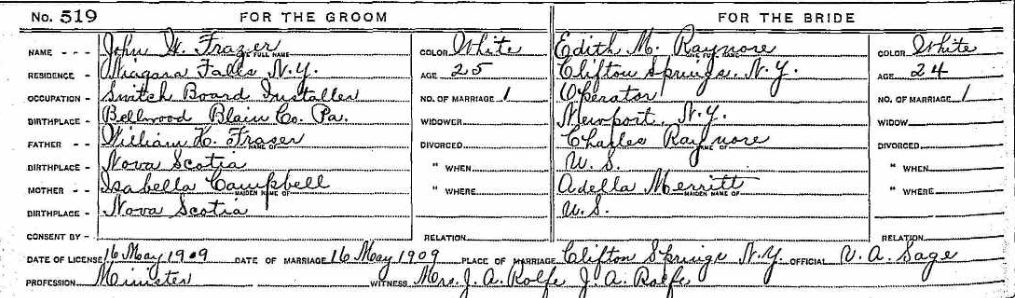 No. 519 FOR THE GROOM FOR THE BRIDE
NAME - - - John W. Frazer COLOR White Edith M. Raynore COLOR White
RESIDENCE - Niagara Falls N.Y. AGE 25 Clifton Springs, N.Y. AGE 24
OCCUPATION - Switch Board Installer NO. OF MARRIAGE 1 Operator NO. OF MARRIAGE 1
BIRTHPLACE - Bellwood Blain Co. Pa. WIDOWER Newport, N.Y. WIDOW
FATHER - - William K. Fraser DIVORCED Charles Raynore DIVORCED
BIRTHPLACE - Nova Scotia " WHEN U.S. " WHEN
MOTHER - - Isabella Campbell MAIDEN NAME OF " WHERE Adella Merritt MAIDEN NAME OF " WHERE
BIRTHPLACE - Nova Scotia U.S.
CONSENT BY - RELATION RELATION
DATE OF LICENSE 16 May 1909 DATE OF MARRIAGE 16 May 1909 PLACE OF MARRIAGE Clifton Springs N.Y. OFFICIAL V. A. Sage
PROFESSION Minister WITNESS Mrs. J. A. Rolfe J. A. Rolfe